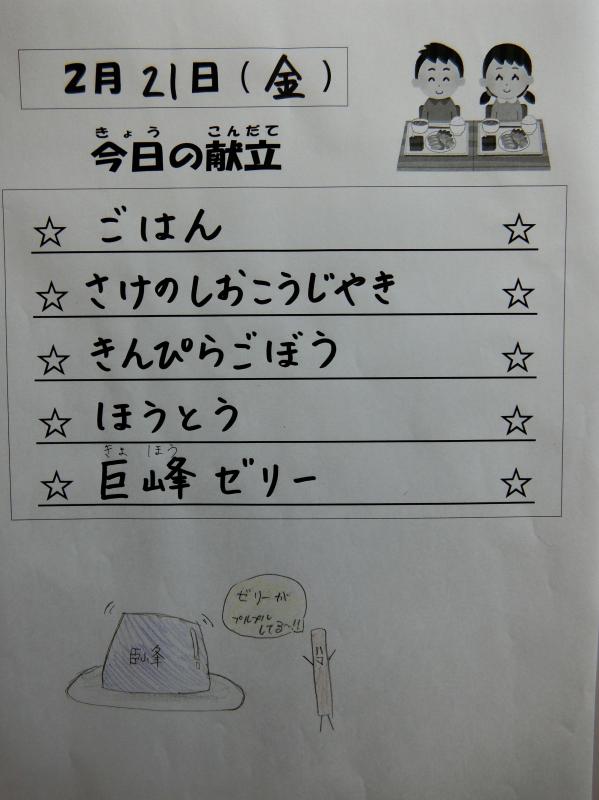 2月21日(金)
きょう こんだて
今日の献立
☆ ごはん ☆
☆ さけのしおこうじやき ☆
☆ きんぴらごぼう ☆
☆ ほうとう ☆
きょ ほう
☆ 巨峰ゼリー ☆
ゼリーが
プルプル
してる〜!!
巨峰